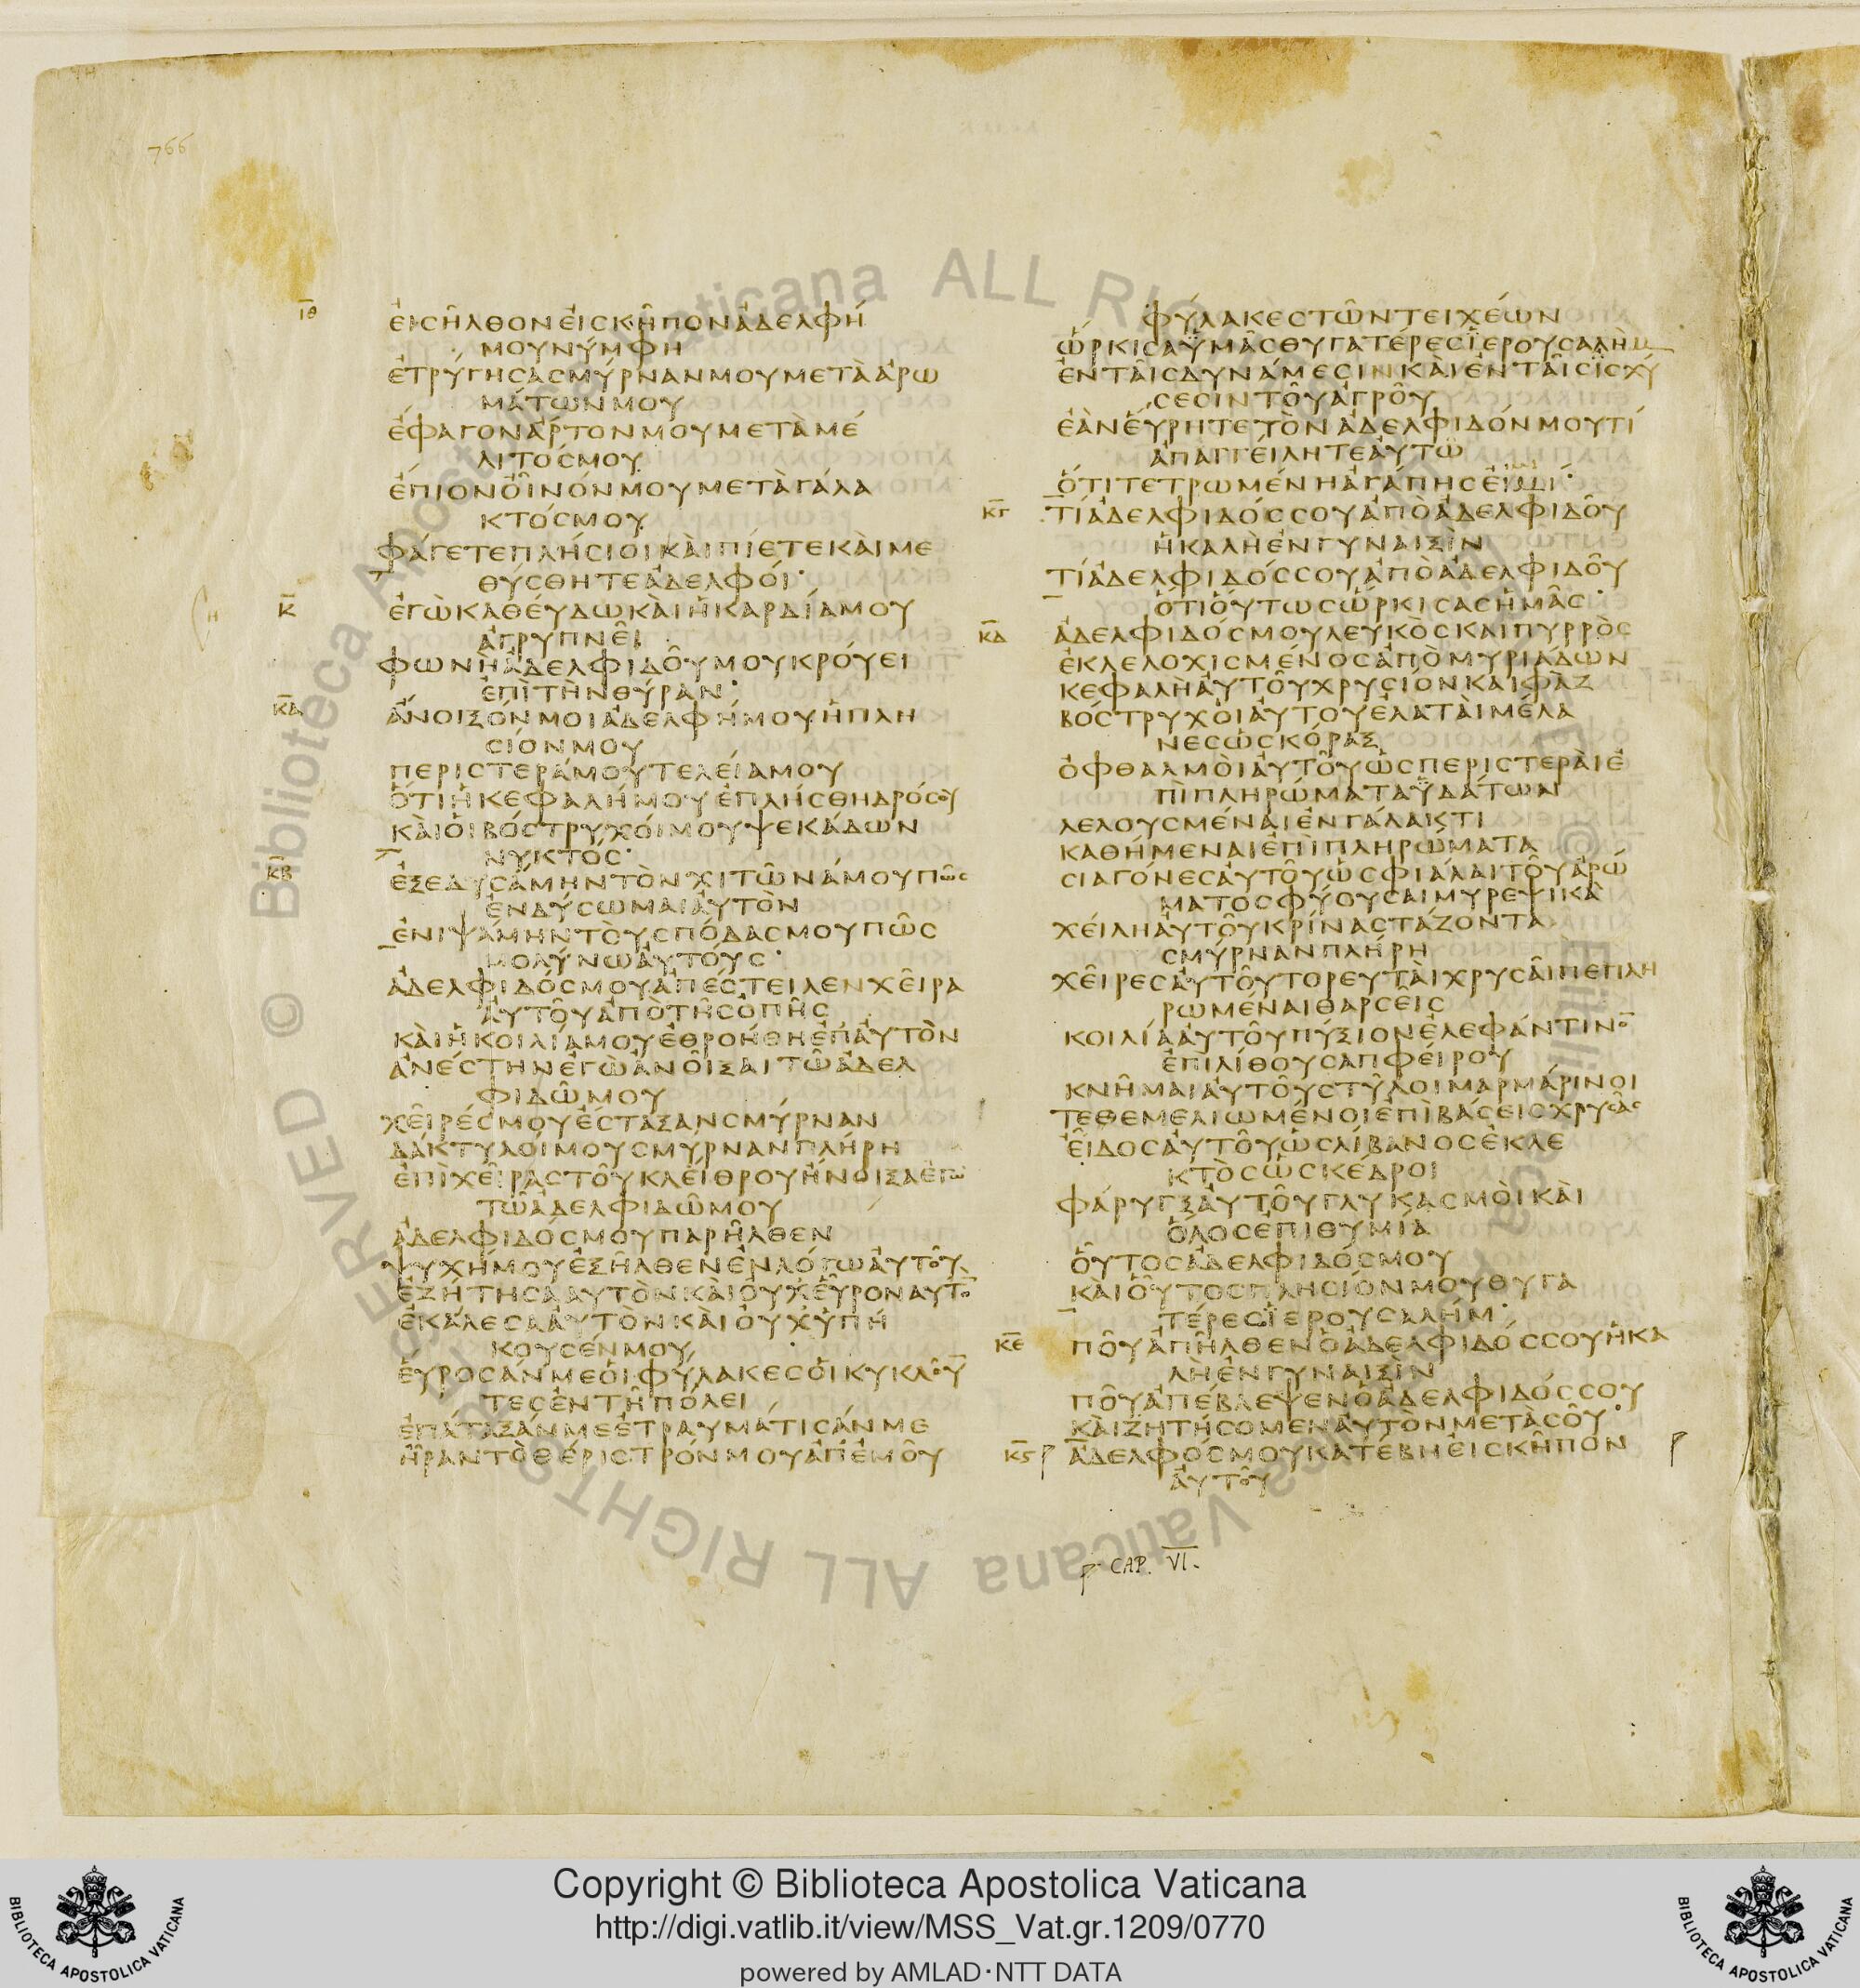 766
ΙΘ
ἐισῆλθονἐισκῆπονἀδελφή
μουνύμφη
ἐτρύγησασμύρνανμουμετὰἀρω
μάτωνμου
ἔφαγονἄρτονμουμετὰμέ
λιτόσμου
ἔπιονὀῖνόνμουμετὰγάλα
κτόσμου
φάγετεπλήσιοικὰιπίετεκὰιμε
θύσθητεἀδελφόι·
Κ
Η
ἐγὼκαθέυδωκὰιἡκαρδίαμου
ἀγρυπνεῖ
φωνὴἀδελφιδοῦμουκρόυει
ἐπὶτὴνθύραν·
ΚΑ
ἄνοιξόνμοιἀδελφήμουἡπλη
σίονμου
περιστεράμουτελείαμου
ὅτιἡκεφαλήμουἐπλήσθηδρόσου
κὰιὁιβόστρυχόιμουψεκάδων
νυκτόσ·
ΚΒ
ἐξεδυσάμηντὸνχιτῶνάμουπῶσ
ἐνδύσωμαιἀυτὸν
ἐνιψάμηντὸυσπόδασμουπῶσ
μολύνωἀυτόυσ·
ἀδελφιδόσμουἀπέστειλενχεῖρα
ἀυτοῦἀπὸτῆσὀπῆσ
κὰιἡκοιλίαμουἐθροήθηἐπἀυτὸν
ἀνέστηνἐγὼἀνοῖξαιτῶἀδελ
φιδῶμου
χεῖρέσμουἔσταξανσμύρναν
δάκτυλόιμουσμύρνανπλήρη
ἐπὶχεῖραστοῦκλέιθρουἤνοιξαἐγὼ
τῶἀδελφιδῶμου
ἀδελφιδόσμουπαρῆλθεν
ψυχήμουἐξῆλθενἐνλόγωἀυτοῦ
ἐζήτησαἀυτὸνκὰιὀυχἑῦρονἀυτο̅
ἐκάλεσαἀυτὸνκὰιὀυχὑπή
κουσένμου
ἕυροσάνμεὁιφύλακεσὁικυκλοῦ̅
τεσἐντῆπόλει
ἐπάταξάνμεἐτραυμάτισάνμε
ἦραντὸθέριστρόνμουἀπἐμοῦ
φύλακεστῶντειχέων
ὥρκισαϋμᾶσθυγατέρεσϊερουσαλὴμ
ἐνταῖσδυνάμεσινκὰιἐνταῖσϊσχύ
σεσιντοῦἀγροῦ
ἐὰνἕυρητετὸνἀδελφιδόνμουτί
ἀπαγγείλητεἀυτῶ
ὅτιτετρωμένηἀγάπησἐιμι·
ΚΓ
τίἀδελφιδόσσουἀπὸἀδελφιδοῦ
ἡκαλὴἐνγυναιξὶν
τίἀδελφιδόσσουἀπὸἀδελφιδοῦ
ὅτιὅυτωσὥρκισασἡμᾶσ·
ΚΔ
ἀδελφιδόσμουλευκὸσκαιπυρρὸσ
ἐκλελοχισμένοσἀπὸμυριάδων
κεφαλὴἀυτοῦχρυσίονκαιφὰζ
βόστρυχοιἀυτουελαταὶμέλα
νεσὡσκόραξ
ὀφθαλμὸιἀυτοῦὡσπεριστερὰιἐ
πὶπληρώματαϋδάτων
λελουσμέναιἐνγάλακτι
καθήμεναιἐπὶπληρώματα
σιαγόνεσἀυτοῦὡσφιάλαιτοῦἀρώ
ματοσφύουσαιμυρεψικὰ
χείληἀυτοῦκρίναστάζοντα
σμύρνανπλήρη
χεῖρεσἀυτοῦτορευτὰιχρυσᾶιπεπλη
ρωμέναιθαρσεισ
κοιλίαἀυτοῦπύξιονἐλεφάντινο̅
ἐπιλίθουσαπφείρου
κνῆμαιἀυτοῦστῦλοιμαρμάρινοι
τεθεμελιωμένοιἐπὶβάσεισχρυσᾶσ
εἶδοσἀυτοῦὡσλίβανοσἐκλε
κτὸσὡσκέδροι
φάρυγξἀυτοῦγλυκασμὸικὰι
ὅλοσἐπιθυμία
ὅυτοσἀδελφιδόσμου
κὰιὅυτοσπλησίονμουθυγα
τέρεσϊερουσαλήμ·
ΚΕ
ποῦἀπῆλθενὁἀδελφιδόσσουἡκα
λὴἐνγυναιξὶν
ποῦἀπέβλεψενὁἀδελφιδόσσου
κὰιζητήσομενἀυτὸνμετὰσοῦ·
ΚϚ
ἀδελφόσμουκατέβηἐισκῆπον
ἀυτοῦ
CAP. VI.
Copyright © Biblioteca Apostolica Vaticana
http://digi.vatlib.it/view/MSS_Vat.gr.1209/0770
powered by AMLAD·NTT DATA
BIBLIOTECA APOSTOLICA VATICANA
BIBLIOTECA APOSTOLICA VATICANA
Biblioteca Apostolica Vaticana ALL RIGHTS RESERVED ©